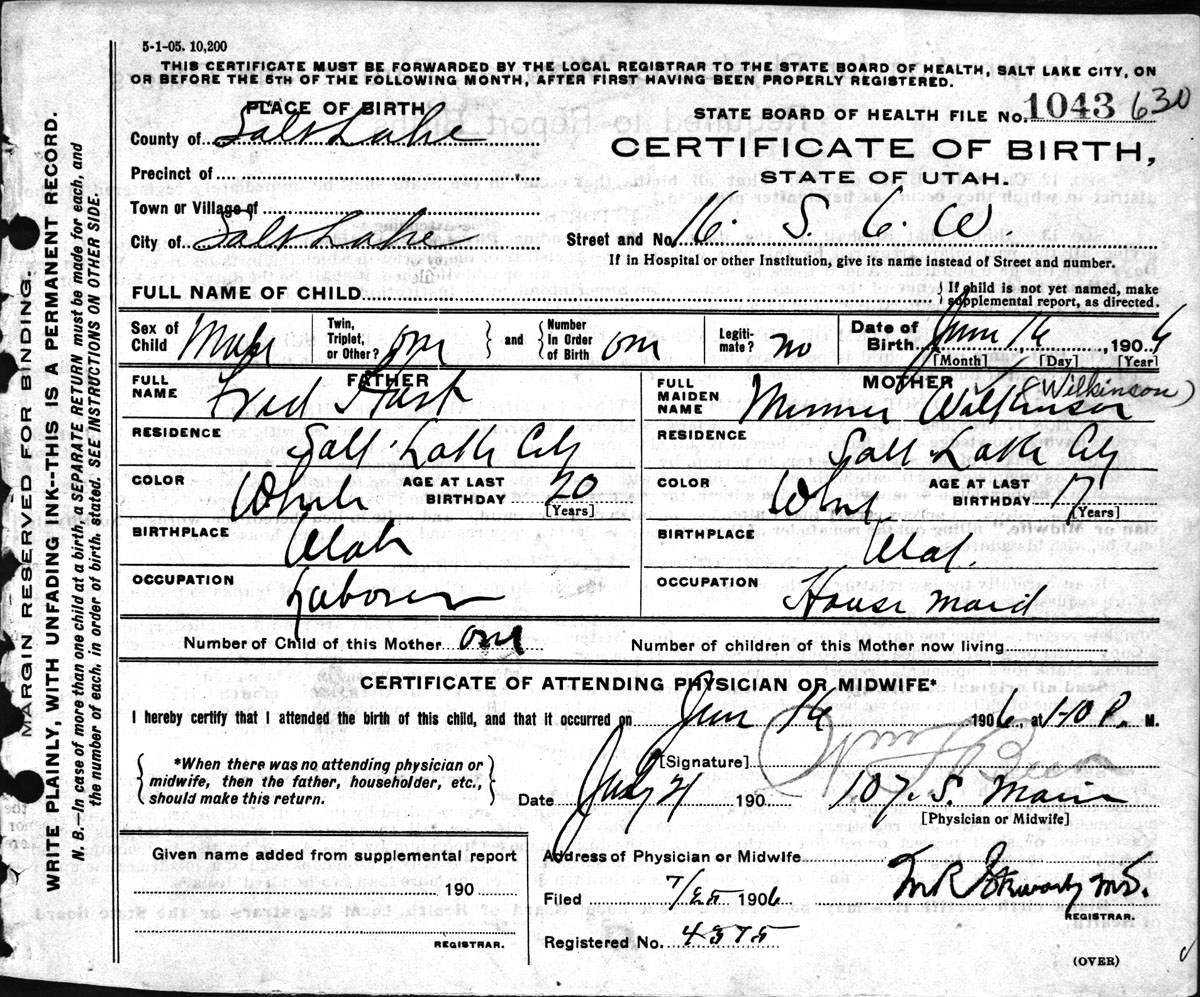 5-1-05. 10,200
THIS CERTIFICATE MUST BE FORWARDED BY THE LOCAL REGISTRAR TO THE STATE BOARD OF HEALTH, SALT LAKE CITY, ON
OR BEFORE THE 5TH OF THE FOLLOWING MONTH, AFTER FIRST HAVING BEEN PROPERLY REGISTERED.
PLACE OF BIRTH
County of Salt Lake
Precinct of
Town or Village of
City of Salt Lake
STATE BOARD OF HEALTH FILE No. 1043 630
CERTIFICATE OF BIRTH,
STATE OF UTAH.
Street and No.
If in Hospital or other Institution, give its name instead of Street and number.
FULL NAME OF CHILD
If child is not yet named, make
supplemental report, as directed.
Sex of Child Male
Twin, Triplet, or Other? one and Number In Order of Birth one
Legiti-mate? no
Date of Birth June 16, 1906
[Month] [Day] [Year]
FATHER
FULL NAME Fred
RESIDENCE Salt Lake City
COLOR White AGE AT LAST BIRTHDAY 20
[Years]
BIRTHPLACE Utah
OCCUPATION Laborer
MOTHER
FULL MAIDEN NAME Minnie Wilkinson (Wilkinson)
RESIDENCE Salt Lake City
COLOR White AGE AT LAST BIRTHDAY 17
[Years]
BIRTHPLACE Utah.
OCCUPATION House maid
Number of Child of this Mother one Number of children of this Mother now living
CERTIFICATE OF ATTENDING PHYSICIAN OR MIDWIFE*
I hereby certify that I attended the birth of this child, and that it occurred on June 16 1906, at 1-10 P. M.
*When there was no attending physician or
midwife, then the father, householder, etc.,
should make this return.
[Signature]
Date July 21 190 107. S. Main
[Physician or Midwife]
Given name added from supplemental report
190
REGISTRAR.
Address of Physician or Midwife
Filed 7/25 1906
REGISTRAR.
Registered No. 4375
(OVER)
MARGIN RESERVED FOR BINDING.
WRITE PLAINLY, WITH UNFADING INK--THIS IS A PERMANENT RECORD.
N. B.—In case of more than one child at a birth, a SEPARATE RETURN must be made for each, and
the number of each, in order of birth, stated. SEE INSTRUCTIONS ON OTHER SIDE.